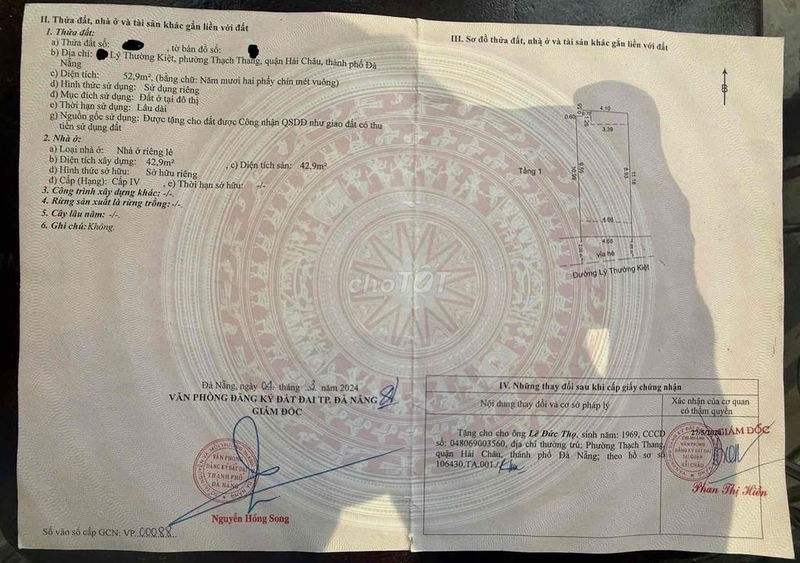 II. Thửa đất, nhà ở và tài sản khác gắn liền với đất
1. Thửa đất:
a) Thửa đất số: , tờ bản đồ số:
b) Địa chỉ: Lý Thường Kiệt, phường Thạch Thang, quận Hải Châu, thành phố Đà
Nẵng
c) Diện tích: 52,9m², (bằng chữ: Năm mươi hai phẩy chín mét vuông)
d) Hình thức sử dụng: Sử dụng riêng
đ) Mục đích sử dụng: Đất ở tại đô thị
e) Thời hạn sử dụng: Lâu dài
g) Nguồn gốc sử dụng: Được tặng cho đất được Công nhận QSDĐ như giao đất có thu
tiền sử dụng đất
2. Nhà ở:
a) Loại nhà ở: Nhà ở riêng lẻ
b) Diện tích xây dựng: 42,9m² , c) Diện tích sàn: 42,9m²
d) Hình thức sở hữu: Sở hữu riêng
đ) Cấp (Hạng): Cấp IV , e) Thời hạn sở hữu: -/-
3. Công trình xây dựng khác: -/-.
4. Rừng sản xuất là rừng trồng:-/-.
5. Cây lâu năm: -/-.
6. Ghi chú:Không.
Đà Nẵng, ngày 04 tháng 3 năm 2024
VĂN PHÒNG ĐĂNG KÝ ĐẤT ĐAI TP. ĐÀ NẴNG
GIÁM ĐỐC
VĂN PHÒNG
ĐĂNG KÝ ĐẤT ĐAI
THÀNH PHỐ
ĐÀ NẴNG
Nguyễn Hồng Song
Số vào sổ cấp GCN: VP.00088
III. Sơ đồ thửa đất, nhà ở và tài sản khác gắn liền với đất
B
4.10
0.60
3.39
Tầng 1
11.16
4.66
4.68
vỉa hè
Đường Lý Thường Kiệt
choTỐT
IV. Những thay đổi sau khi cấp giấy chứng nhận
Nội dung thay đổi và cơ sở pháp lý
Xác nhận của cơ quan
có thẩm quyền
Tặng cho cho ông Lê Đức Thọ, sinh năm: 1969, CCCD
số: 048069003560, địa chỉ thường trú: Phường Thạch Thang,
quận Hải Châu, thành phố Đà Nẵng; theo hồ sơ số
106430.TA.001./
GIÁM ĐỐC
CHI NHÁNH
VĂN PHÒNG
ĐĂNG KÝ ĐẤT ĐAI
TẠI QUẬN
HẢI CHÂU
Phan Thị Hiền